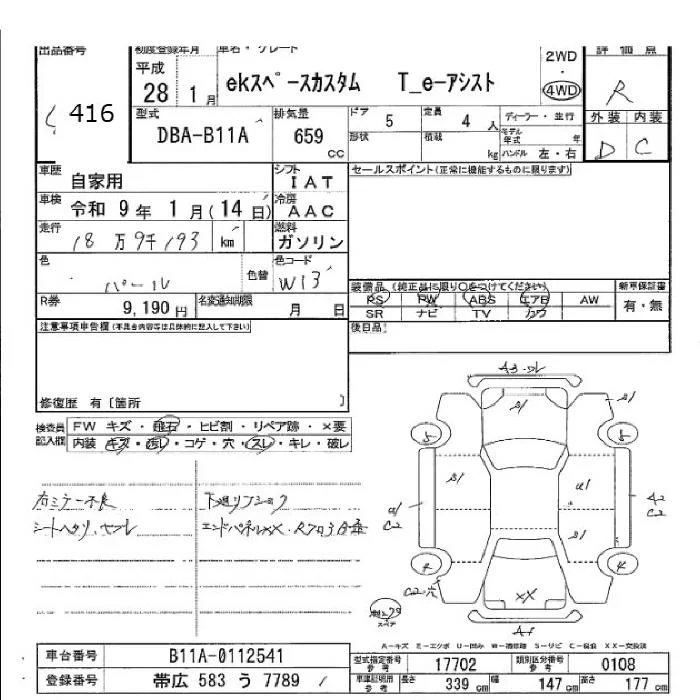 出品番号 初度登録年月 車名・グレード 2WD ・ 4WD 評価点
416 平成 28 1月 ekスペースカスタム T_e-アシスト R
型式 DBA-B11A 排気量 659 cc ドア 5 定員 4 人 ディーラー・並行 外装 内装
形状 積載 kg モデル年式 年 ハンドル 左・右 D C
車歴 自家用 シフト IAT セールスポイント(正常に機能するものに限ります)
車検 令和 9年 1月(14日) 冷房 AAC
走行 18万9千193 km 燃料 ガソリン
色 パール 色替 色コード W13
装備品(純正品に限り○をつけてください) 新車保証書
R券 9,190円 名変通知期限 月 日 PS PW ABS エアB AW 有・無
SR ナビ TV カワ
注意事項申告欄(不具合内容等は具体的に記入して下さい) 後日品
修復歴 有〔箇所 〕
検査員記入欄 FW キズ・飛石・ヒビ割・リペア跡・×要
内装 キズ・汚レ・コゲ・穴・スレ・キレ・破レ
右ミラー不良 下廻りフショク
シートヘタリ、ヤブレ エンドパネルXX
A3
5 5
A1
C2
A2
C2
4 4
C2穴
XX
スペア
A1
A-キズ E-エクボ U-凹み W-補修跡 S-サビ C-腐蝕 XX-交換済
車台番号 B11A-0112541 型式指定番号参考 17702 類別区分番号参考 0108
登録番号 帯広 583 う 7789 車庫証明用参考 長さ 339 cm 幅 147 cm 高さ 177 cm